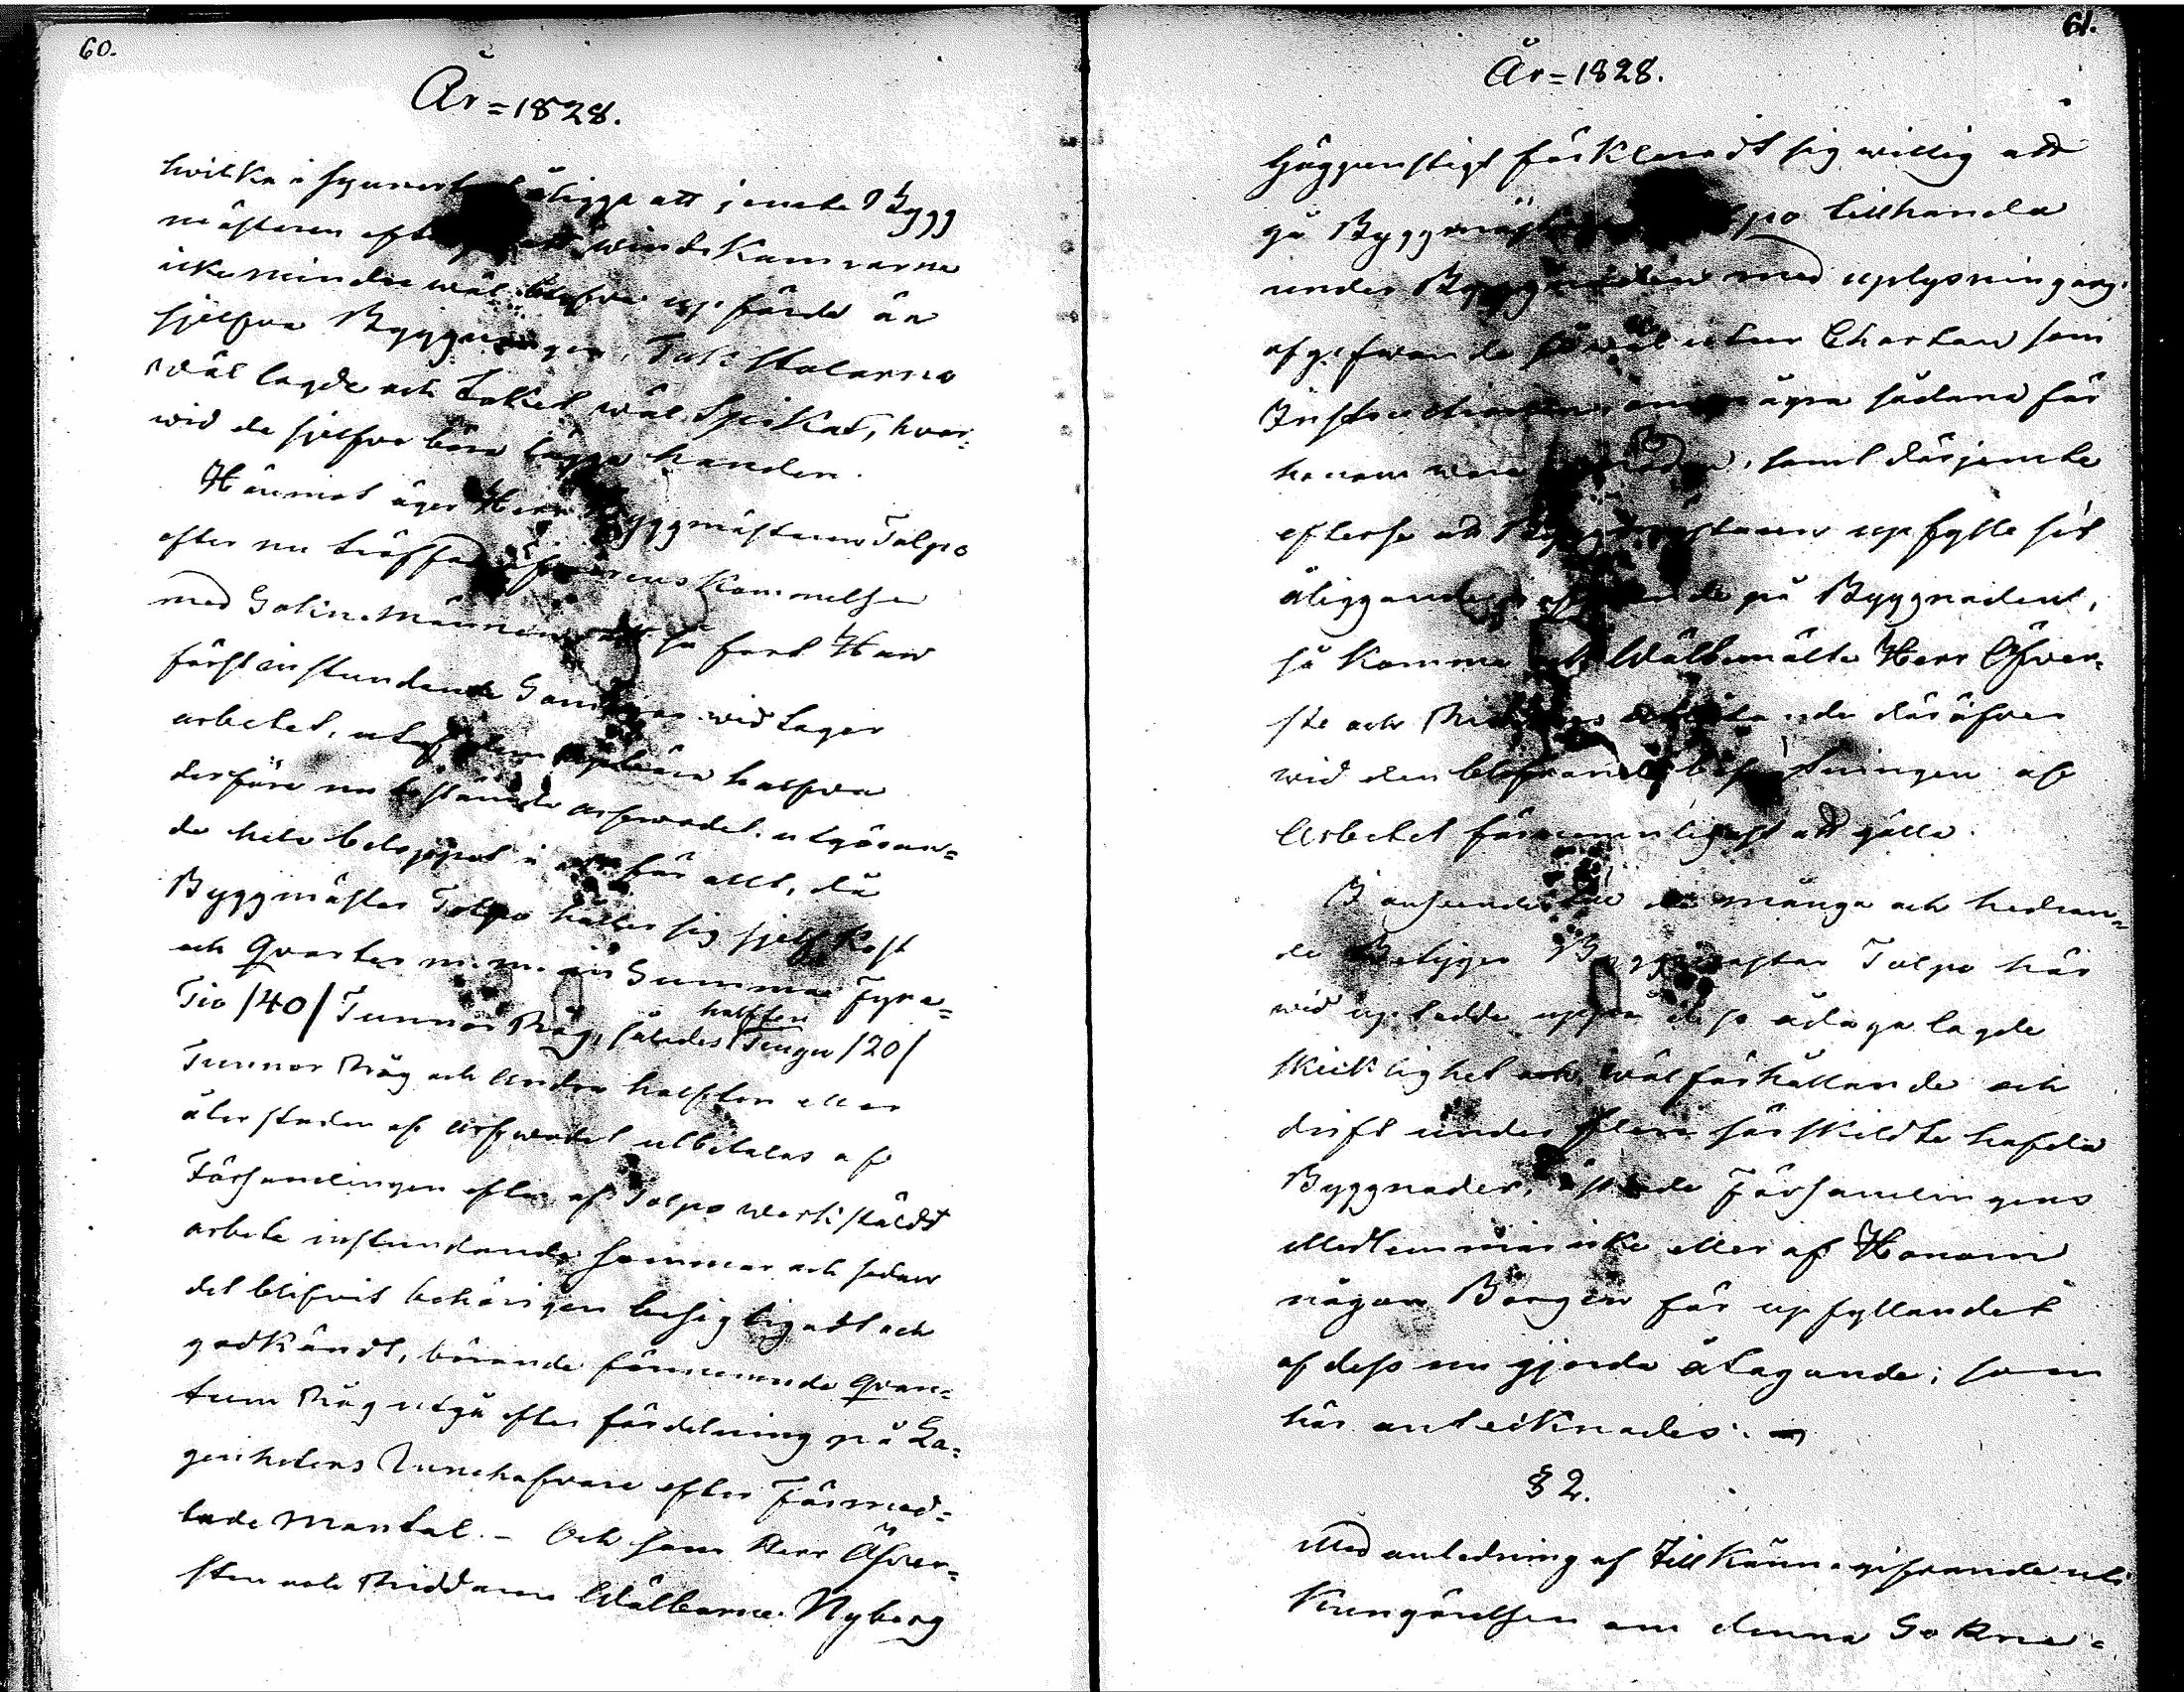 60.
År = 1828.
hvilka i synnerhet åligga att jemte Bygg
mästaren efter att windskamrarne
icke mindre wäl blifwa upförde än
sjelfva Byggningen, Takstolarne
wäl lagde och taket wäl spikat, hvar=
wid de sjelfve böra lägga handen.
Härmot äger Herr Byggmästaren Tolpo
efter nu träffad öfwerenskommelse
med Sokne-Männen så fort Han
först instundande Sommar widtager
arbetet, halfva
derföre nu bestämde arfwodet, utgöran=
de hela beloppet i ett för allt, då
Byggmäster Tolpo håller sig sjelf Kost
och Qvarter m. m. en Summa Fyra=
Tio /40/ Tunnor Råg, således halfften Tjugu /20/
Tunnor Råg och andra halfften eller
återstoden af arfwodet utbetalas af
Församlingen efter af Tolpo werkstäldt
arbete instundande sommar och sedan
det blifvit behörigen besigtigadt och
godkändt, börande förenämnde Qvan=
tum Råg utgå efter fördelning på Lä=
genhetens Innehafvare efter Förmed=
lade Mantal. – Och som Herr Öfwer=
sten och Riddaren Wälborne Nyborg
61.
År = 1828.
Höggunstigt förklaradt sig willig att
gå Byggmästaren Tolpo tillhanda
under Byggnaden med uplysningars
afgifwande så wäl utur Chartan som
Instructionen om några sådana för
honom wore samt därjemte
efterse att Byggmästaren upfylle sit
åliggande på Byggnaden,
så kommer Wälbemälte Herr Öfwer=
ste och Riddares däröfwer
wid den blifwande besigtningen af
Arbetet förnemligast att gälla.
I anseende till de många och hedran=
de Betyger Byggmästar Tolpo här
wid upstedde uppå dess ådagalagde
skicklighet och wälförhållande och
drift under flere särskildte hafda
Byggnader, äskade Församlingens
Medlemmar icke eller af Honom
någon Borgen för upfyllandet
af dess nu gjorde åtagande; som
här antecknades.
§ 2.
Med anledning af Tillkännagifvande uti
Kungörelsen om denna Sokne=